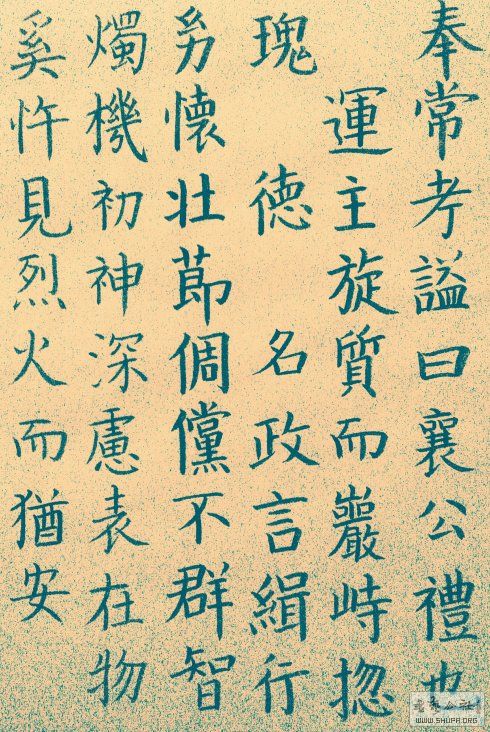 奉常考謚曰襄公禮也
運主旋質而巖峙揔
瑰 德 名政言緝行
懷壯莭倜儻不群智
燭機初神深慮表在物
奚忤見烈火而猶安
WWW.SHUFA.ORG